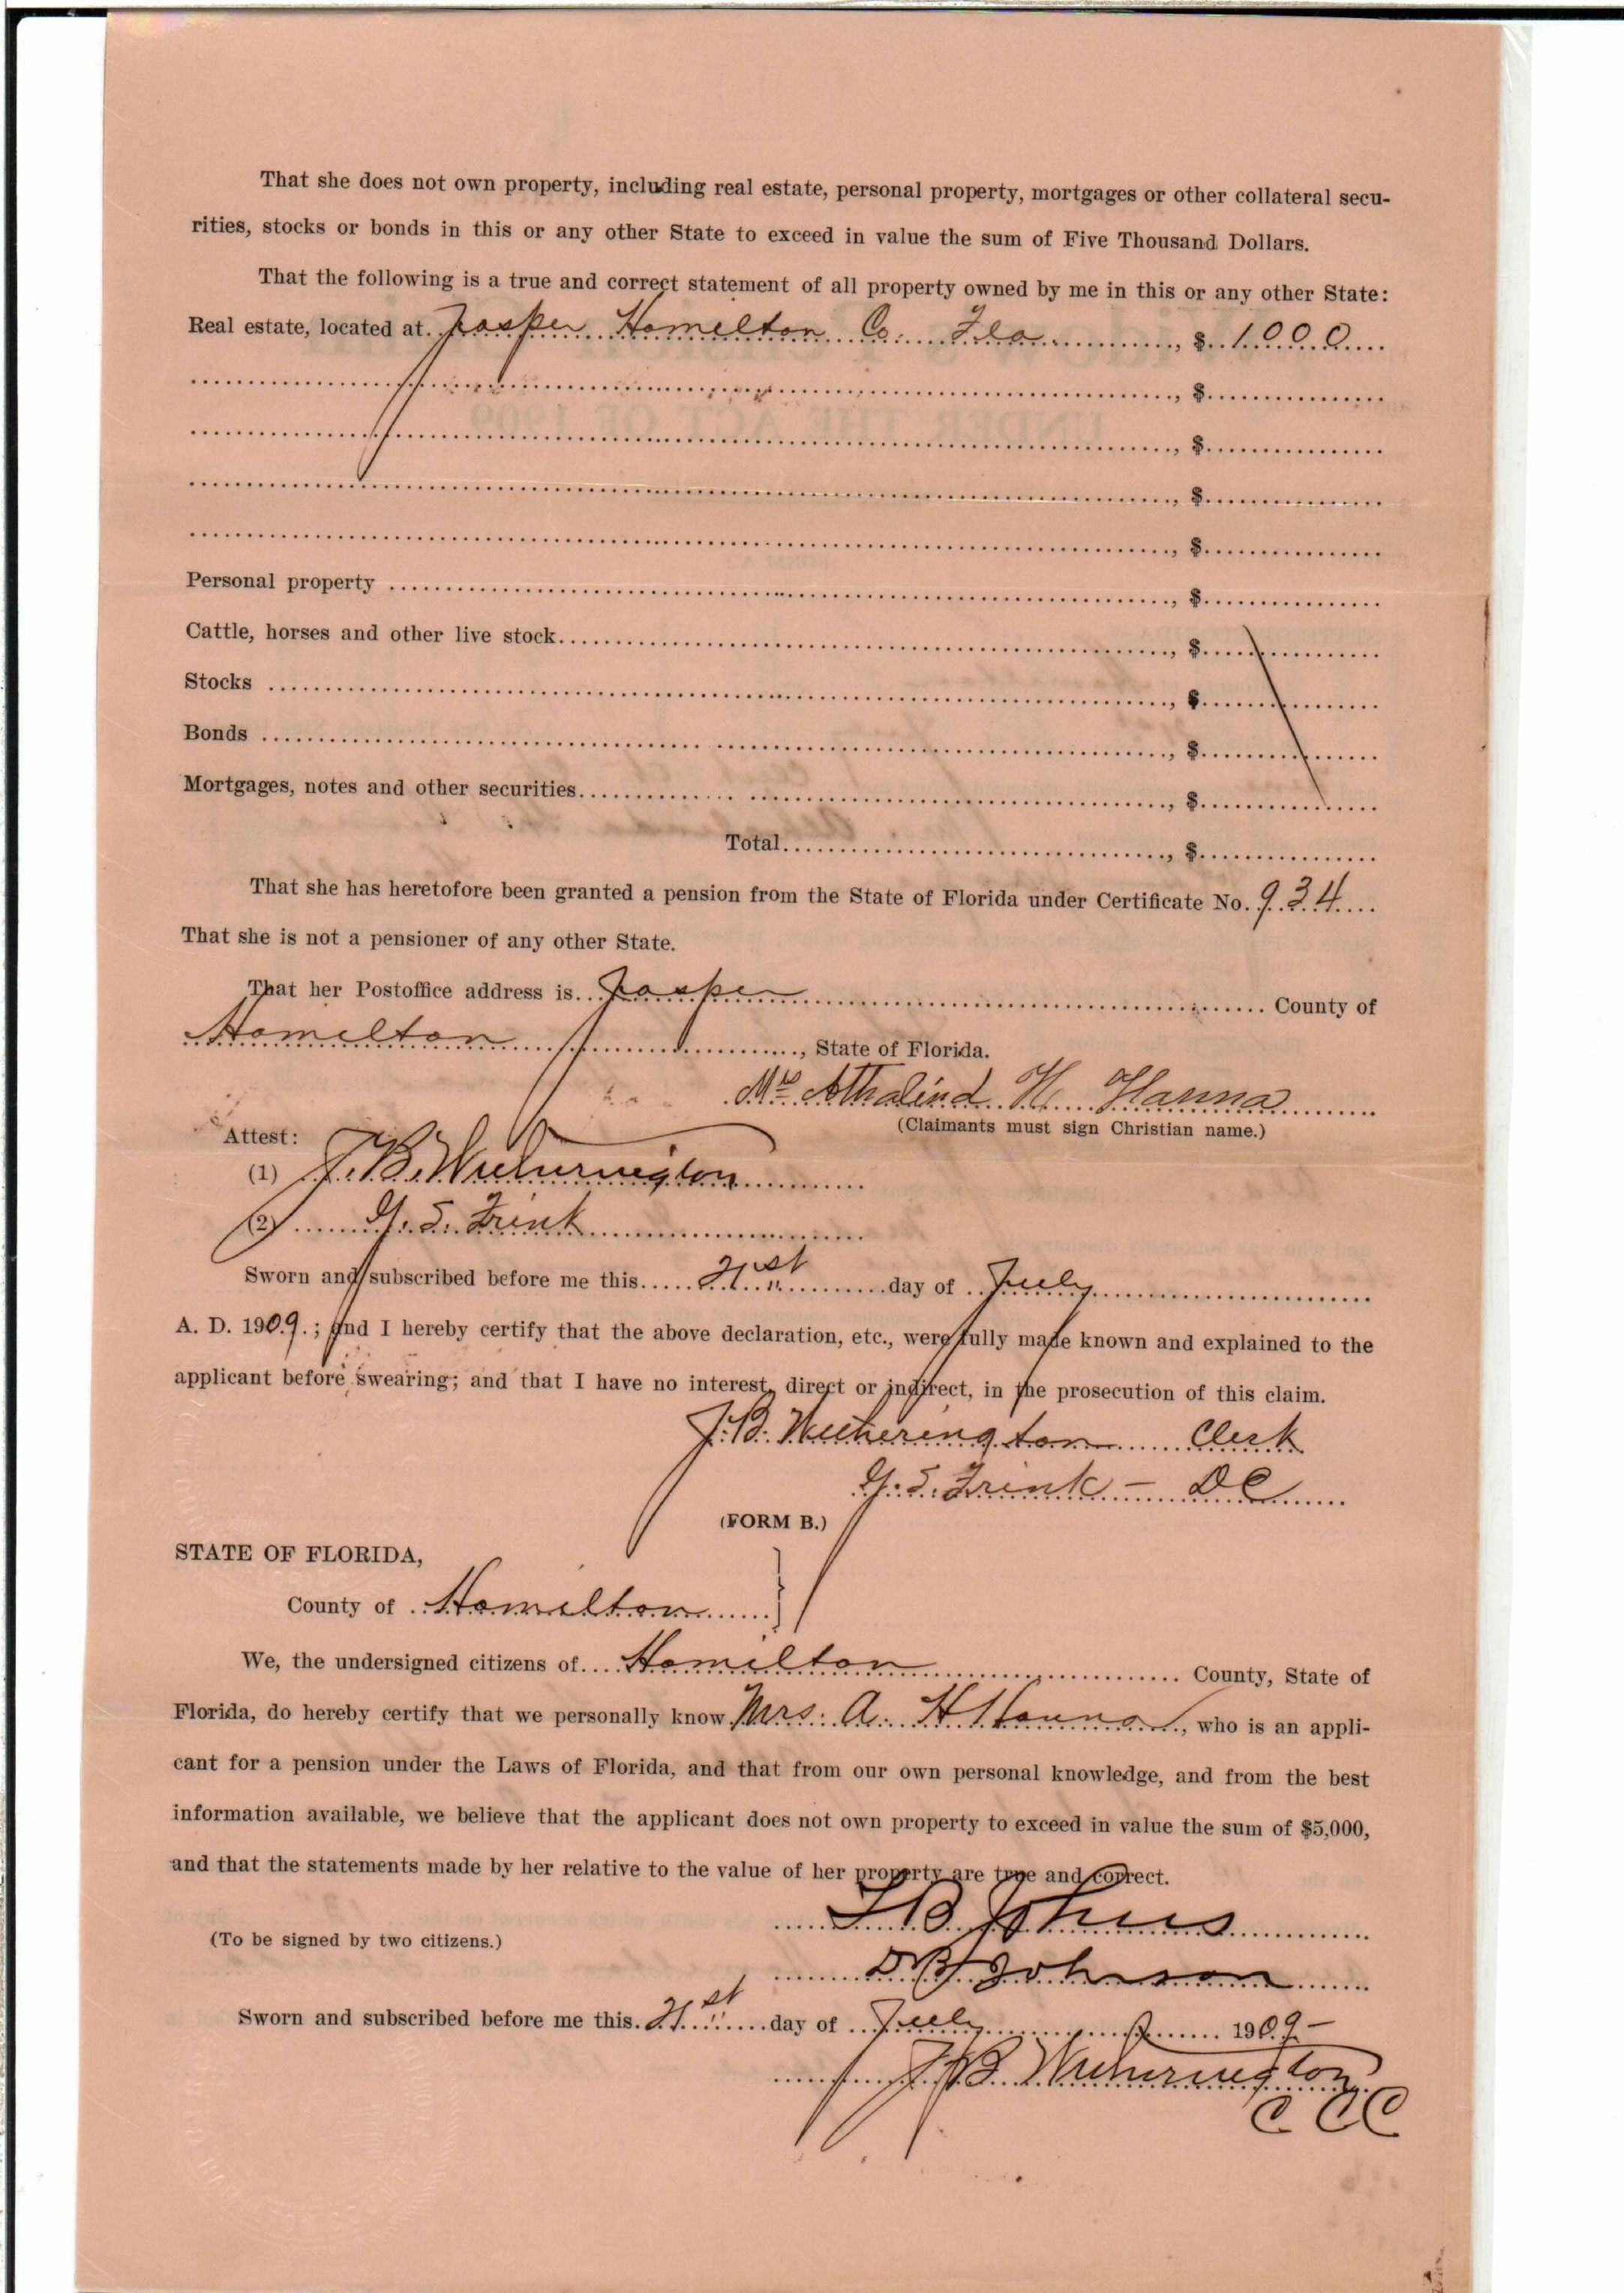 That she does not own property, including real estate, personal property, mortgages or other collateral secu-
rities, stocks or bonds in this or any other State to exceed in value the sum of Five Thousand Dollars.
That the following is a true and correct statement of all property owned by me in this or any other State:
Real estate, located at Jasper Hamilton Co. Fla, $ 1000
, $
, $
, $
, $
Personal property, $
Cattle, horses and other live stock, $
Stocks, $
Bonds, $
Mortgages, notes and other securities, $
Total, $
That she has heretofore been granted a pension from the State of Florida under Certificate No. 934
That she is not a pensioner of any other State.
That her Postoffice address is Jasper County of
Hamilton, State of Florida.
Mrs Athalind H. Hanna
(Claimants must sign Christian name.)
Attest:
(1) J. B. Witherington
(2) G. S. Frink
Sworn and subscribed before me this 21st day of July
A. D. 1909.; and I hereby certify that the above declaration, etc., were fully made known and explained to the
applicant before swearing; and that I have no interest, direct or indirect, in the prosecution of this claim.
J. B. Witherington Clerk
G. S. Frink - DC
(FORM B.)
STATE OF FLORIDA,
County of Hamilton }
We, the undersigned citizens of Hamilton County, State of
Florida, do hereby certify that we personally know Mrs. A. H Hanna, who is an appli-
cant for a pension under the Laws of Florida, and that from our own personal knowledge, and from the best
information available, we believe that the applicant does not own property to exceed in value the sum of $5,000,
and that the statements made by her relative to the value of her property are true and correct.
B Johns
(To be signed by two citizens.)
D B Johnson
Sworn and subscribed before me this 21st day of July 1909-
J B Witherington
C C C